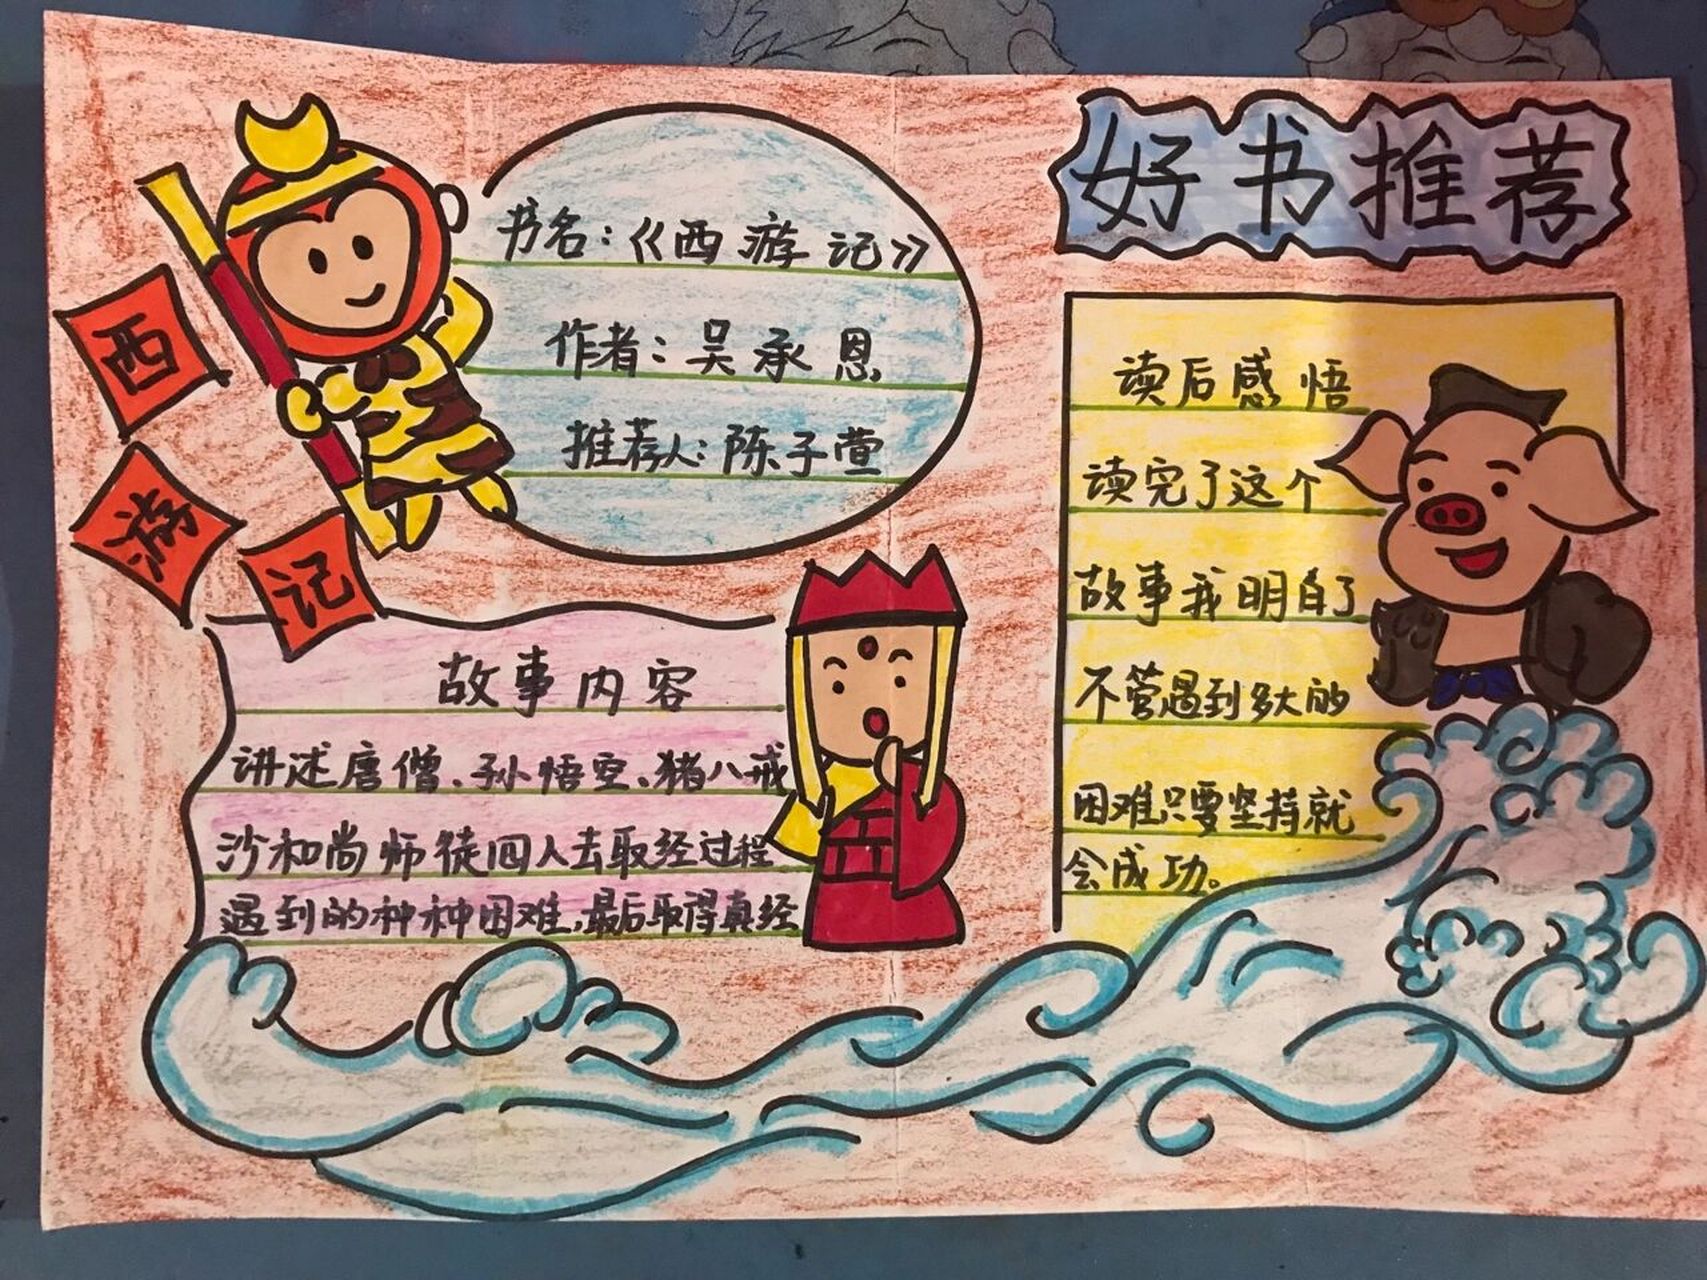 好书推荐
西
游
记
书名:《西游记》
作者:吴承恩
推荐人:陈子萱
故事内容
讲述唐僧、孙悟空、猪八戒
沙和尚师徒四人去取经过程
遇到的种种困难,最后取得真经
读后感悟
读完了这个
故事我明白了
不管遇到多大的
困难只要坚持就
会成功。